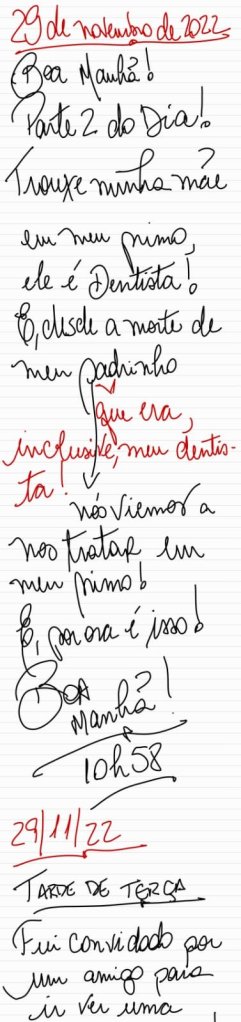 29 de novembro de 2022
Boa Manhã!
Parte 2 do Dia!
Trouxe minha mãe
em meu primo,
ele é Dentista!
E, desde a morte de
meu padrinho
que era,
inclusive, meu dentis-
ta!
nós viemos a
nos tratar em
meu primo!
E, por ora é isso!
BOA
Manhã!
10h58
29/11/22
TARDE DE TERÇA
Fui convidado por
um amigo para
ir ver uma